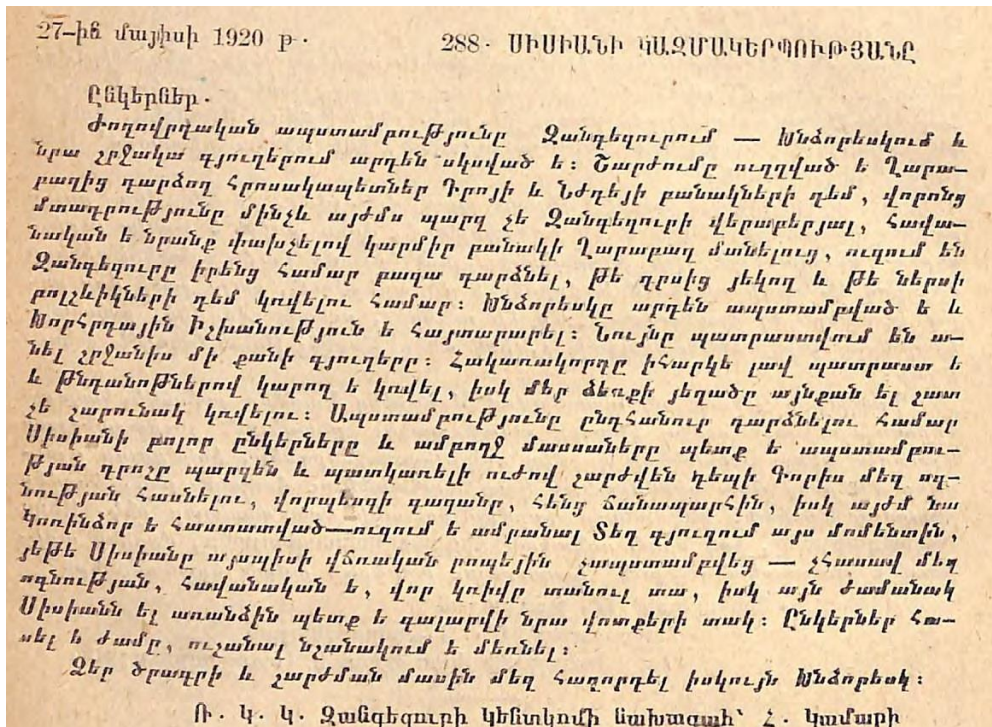 27–ին մայիսի 1920 թ.
288. ՍԻՍԻԱՆԻ ԿԱԶՄԱԿԵՐՊՈՒԹՅԱՆԸ
Ընկերներ.
Ժողովրդական ապստամբությունը Զանգեզուրում — Խնձորեսկում և
նրա շրջակա գյուղերում արդեն սկսված ե: Շարժումը ուղղված ե Ղարա–
բաղից դարձող հրոսակապետներ Դրոյի և Նժդեյի բանակների դեմ, վորոնց
մտադրությունը մինչև այժմս պարզ չե Զանգեզուրի վերաբերյալ, հավա–
նական ե նրանք փախչելով կարմիր բանակի Ղարաբաղ մտնելուց, ուզում են
Զանգեզուրը իրենց համար բազա դարձնել, թե դրսից յեկող և թե ներսի
բոլշևիկների դեմ կռվելու համար: Խնձորեսկը արդեն ապստամբված ե և
Խորհրդային Իշխանություն ե հայտարարել: Նույնը պատրաստվում են ա–
նել շրջանիս մի քանի գյուղերը: Հակառակորդը իհարկե լավ պատրաստ ե
և թնդանոթներով կարող ե կռվել, իսկ մեր ձեռքի յեղածը այնքան ել շատ
չե շարունակ կռվելու: Ապստամբությունը ընդհանուր դարձնելու համար
Սիսիանի բոլոր ընկերները և ամբողջ մասսաները պետք ե ապստամբու–
թյան դրոշը պարզեն և պատկառելի ուժով շարժվեն դեպի Գորիս մեզ ոգ–
նության հասնելու, վորպեսզի գազանը, հենց ճանապարհին, իսկ այժմ նա
Կոռնձոր ե հաստատված—ուզում ե ամրանալ Տեղ գյուղում այս մոմենտին,
յեթե Սիսիանը այսպիսի վճռական րոպեյին չապստամբվեց — չհասավ մեզ
ոգնության, հավանական ե, վոր կռիվը տանուլ տա, իսկ այն ժամանակ
Սիսիանն ել առանձին պետք ե գալարվի նրա վոտքերի տակ: Ընկերներ հա–
սել ե ժամը, ուշանալ նշանակում ե մեռնել:
Ձեր ծրագրի և շարժման մասին մեզ հաղորդել իսկույն Խնձորեսկ:
Ռ. Կ. Կ. Զանգեզուրի Կենտկոմի նախագահ՝ Հ. Կամարի